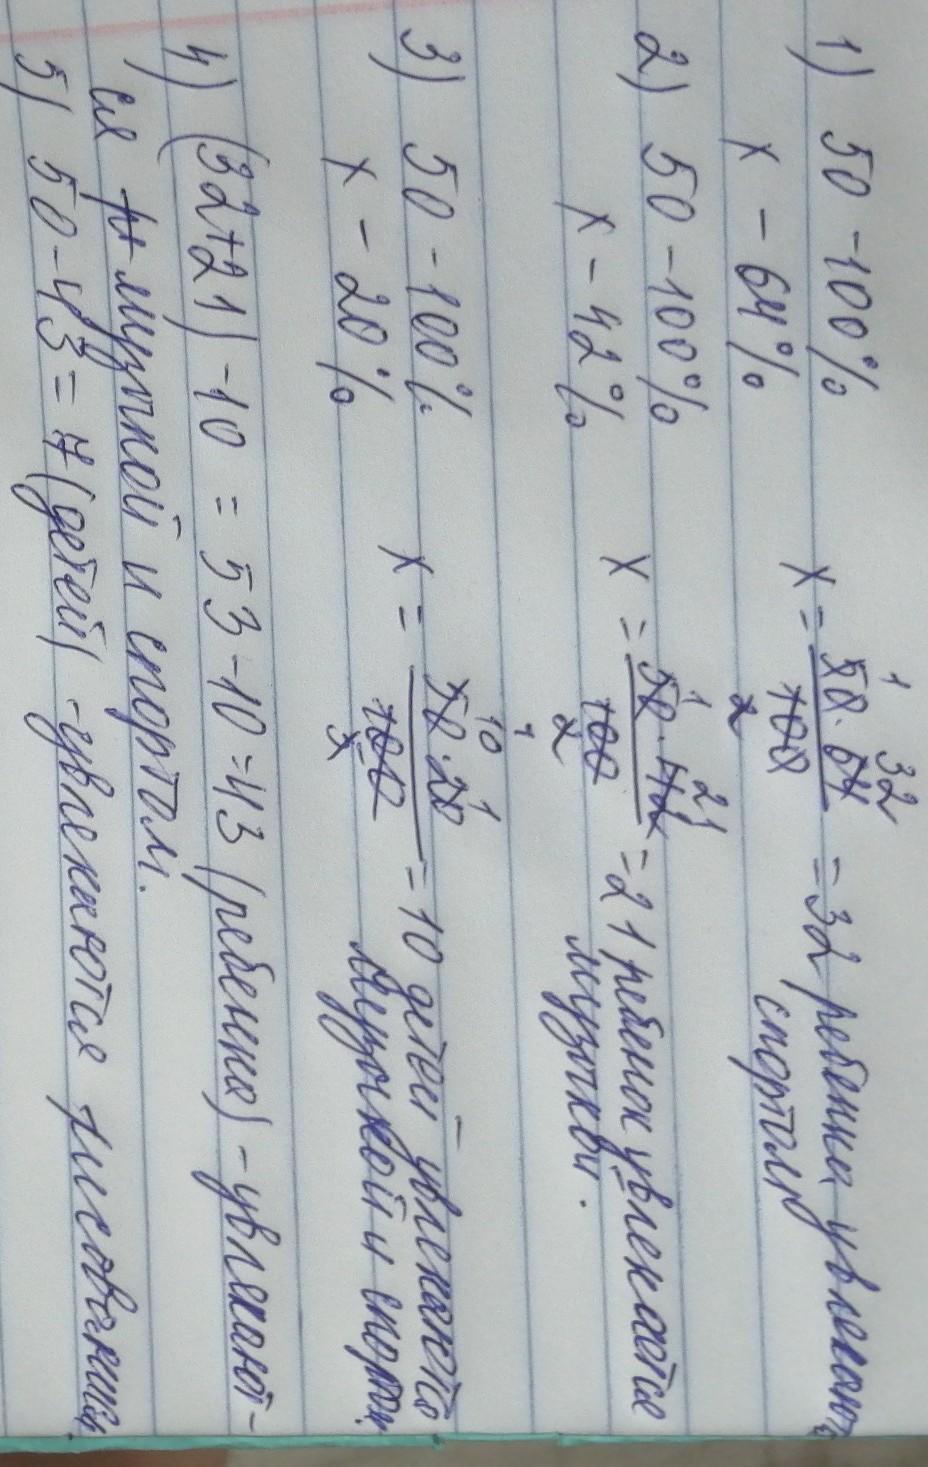 1) 50 - 100% x = 50 · 64 / 100 = 32 ребенка увлекают
x - 64% спортом
2) 50 - 100% x = 50 · 42 / 100 = 21 ребенок увлекается
x - 42% музыкой.
3) 50 - 100% x = 50 · 20 / 100 = 10 детей увлекаются
x - 20% музыкой и спортом.
4) (32+21) - 10 = 53 - 10 = 43 (ребенка) - увлекают-
ся музыкой и спортом.
5) 50 - 43 = 7 (детей) - увлекаются рисованием.